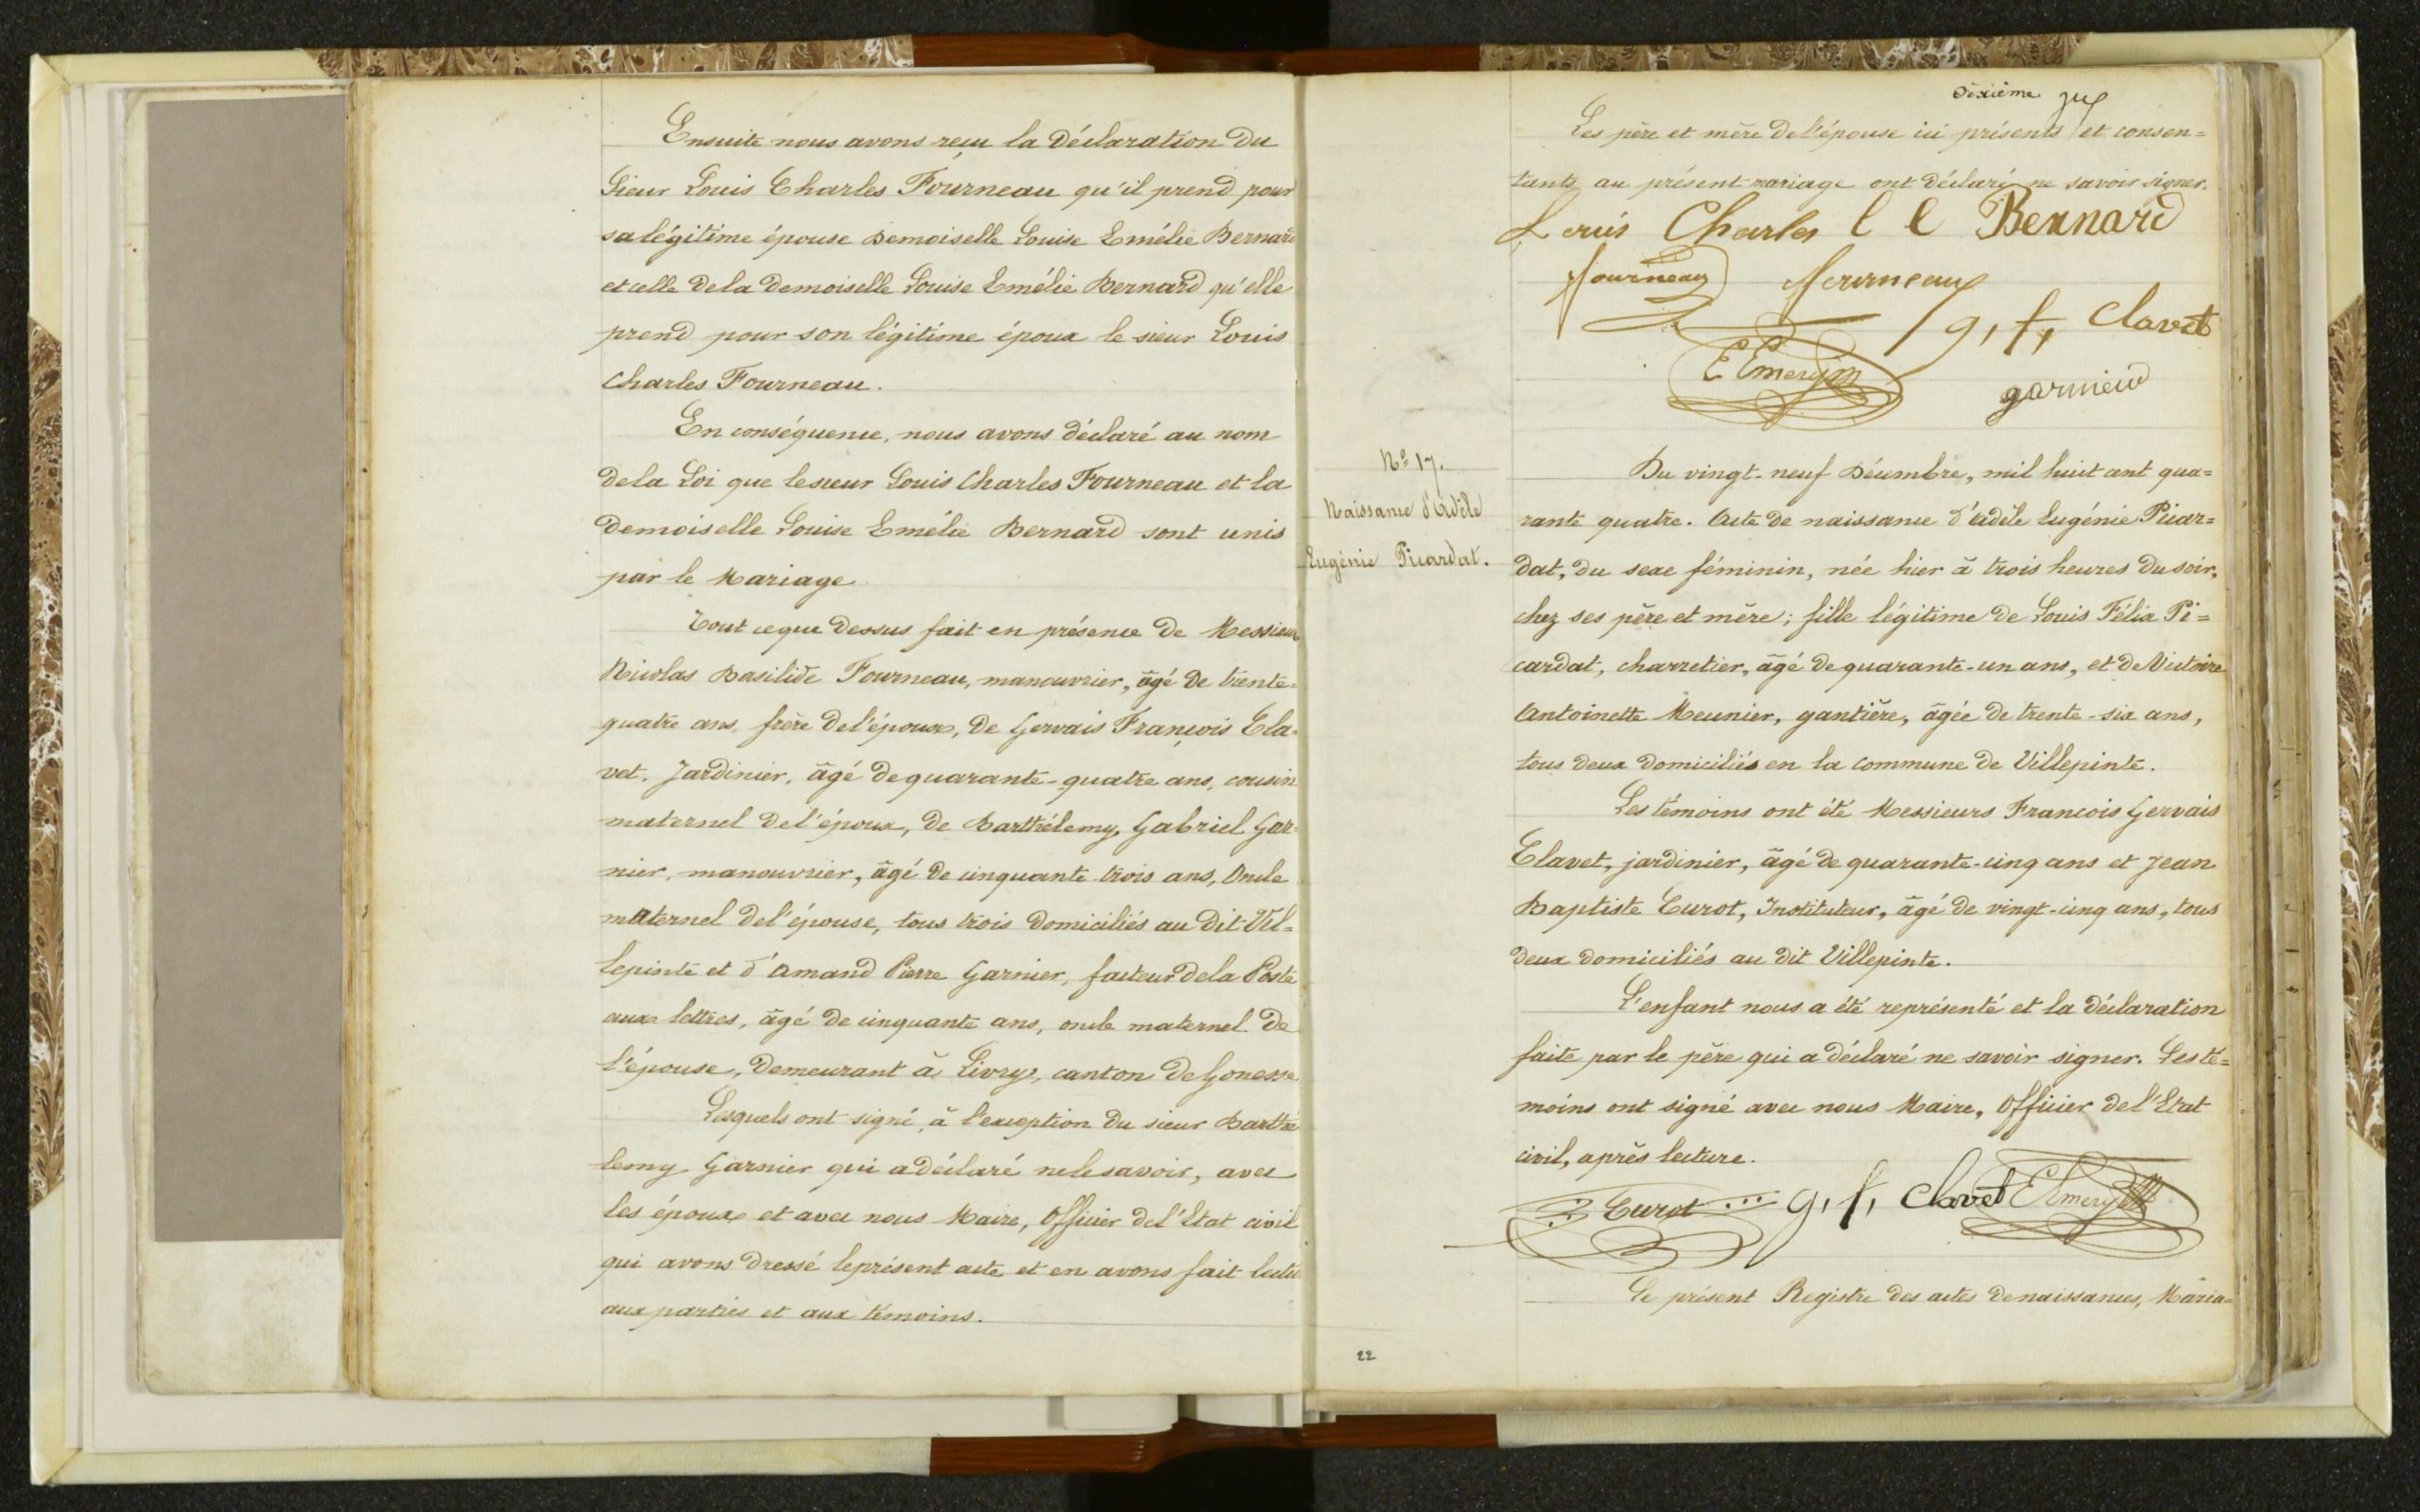 Ensuite nous avons reçu la déclaration du
Sieur Louis Charles Fourneau qu'il prend pour
sa légitime épouse Demoiselle Louise Emélie Bernard
et celle de la demoiselle Louise Emélie Bernard qu'elle
prend pour son légitime époux le sieur Louis
Charles Fourneau.
En conséquence, nous avons déclaré au nom
de la Loi que le sieur Louis Charles Fourneau et la
demoiselle Louise Emélie Bernard sont unis
par le Mariage.
Tout ce que dessus fait en présence de Messieurs
Nicolas Basilide Fourneau, manouvrier, âgé de trente-
quatre ans, frère de l'époux, de Gervais François Cla-
vet, Jardinier, âgé de quarante-quatre ans, cousin
maternel de l'époux, de Barthélemy, Gabriel Gar-
nier, manouvrier, âgé de cinquante-trois ans, Oncle
maternel de l'épouse, tous trois domiciliés au dit Vil=
lepinte et d'Amand Pierre Garnier, facteur de la Poste
aux lettres, âgé de cinquante ans, oncle maternel de
l'épouse, demeurant à Livry, canton de Gonesse
Lesquels ont signé, à l'exception du sieur Barthé
lemy Garnier qui a déclaré ne le savoir, avec
les époux et avec nous Maire, Officier de l'Etat civil
qui avons dressé le présent acte et en avons fait lecture
aux parties et aux témoins.
Sixième
Les père et mère de l'épouse ici présents et consen=
tants au présent mariage ont déclaré ne savoir signer.
Louis Charles l e Bernard
fourneau fourneau
g, f, Clavet
E Emery
garnier
Nº 17.
Naissance d'Adèle
Eugénie Picardat.
Du vingt-neuf Décembre, mil huit cent qua=
rante quatre. Acte de naissance d'Adèle Eugénie Picar=
dat, du sexe féminin, née hier à trois heures du soir,
chez ses père et mère; fille légitime de Louis Félix Pi=
cardat, charretier, âgé de quarante-un ans, et de Victoire
Antoinette Meunier, gantière, âgée de trente-six ans,
tous deux domiciliés en la commune de Villepinte.
Les témoins ont été Messieurs Francois Gervais
Clavet, jardinier, âgé de quarante-cinq ans et Jean
Baptiste Curot, Instituteur, âgé de vingt-cinq ans, tous
deux domiciliés au dit Villepinte.
L'enfant nous a été représenté et la déclaration
faite par le père qui a déclaré ne savoir signer. Les té=
moins ont signé avec nous Maire, Officier de l'Etat
civil, après lecture.
Curot g, f, Clavet E Emery
Le présent Registre des actes de naissances, Maria=
22